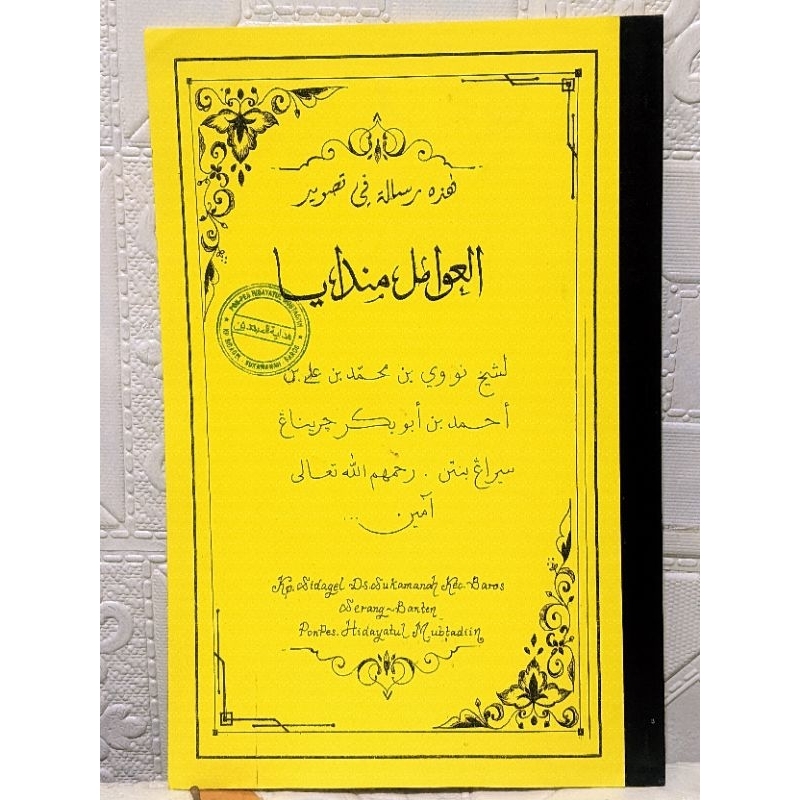 هذه رسالة في تصوير
العوامل مندايا
لشيخ نووي بن محمّد بن علي بن
أحمد بن أبو بكر چريناڠ
سيراڠ بنتن . رحمهم الله تعالى
آمين ...
Kp. Sidagel Ds. Sukamanah Kec. Baros
Serang - Banten
PonPes. Hidayatul Mubtadiin
PON-PES HIDAYATUL MUBTADIIN